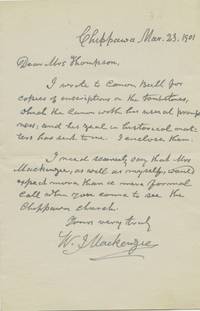 Chippawa Mar. 23. 1901
Dear Mrs Thompson,
I wrote to Canon Bull for
copies of inscriptions on the tombstones,
which the Canon with his usual prompt
ness, and his zeal in historical mat-
ters has sent to me. I enclose them.
I need scarcely say that Mrs
Mackenzie, as well as myself, want
much more than a mere formal
call when you come to see the
Chippawa church.
Yours very truly
W. J. Mackenzie